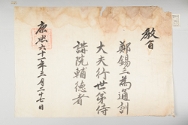 敎旨
鄭錫三為通訓
大夫行世弟侍
講院輔德者
康熙六十一年三月二十七日